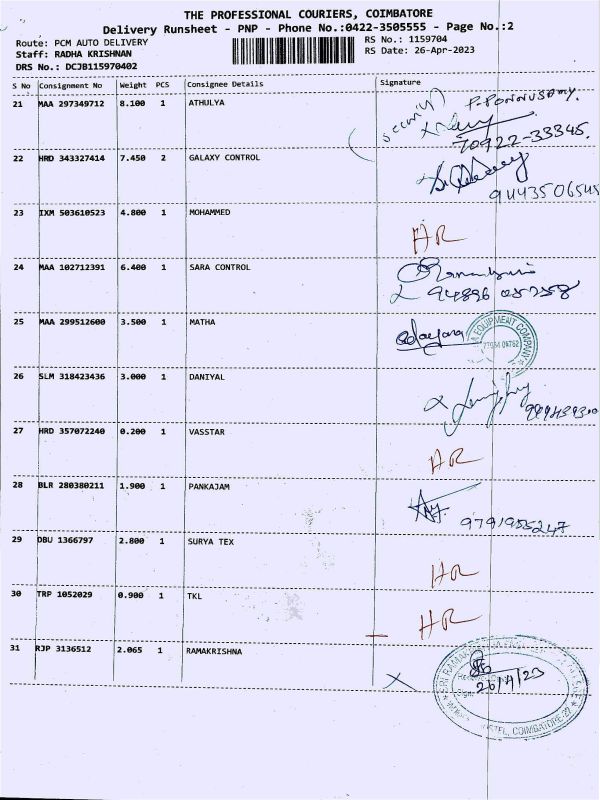 THE PROFESSIONAL COURIERS, COIMBATORE
Delivery Runsheet - PNP - Phone No.:0422-3505555 - Page No.:2
Route: PCM AUTO DELIVERY
RS No.: 1159704
Staff: RADHA KRISHNAN
RS Date: 26-Apr-2023
DRS No.: DCJB115970402
S No Consignment No Weight PCS Consignee Details Signature
21 MAA 297349712 8.100 1 ATHULYA
(security) P. PONNUSAMY.
70922-33345.
22 HRD 343327414 7.450 2 GALAXY CONTROL
9443506545
23 IXM 503610523 4.800 1 MOHAMMED
HR
24 MAA 102712391 6.400 1 SARA CONTROL
94896 05758
25 MAA 299512600 3.500 1 MATHA
EQUIPMENT COMPANY
26 SLM 318423436 3.000 1 DANIYAL
27 HRD 357072240 0.200 1 VASSTAR
HR
28 BLR 280380211 1.900 1 PANKAJAM
9791955247
29 DBU 1366797 2.800 1 SURYA TEX
HR
30 TRP 1052029 0.900 1 TKL
HR
31 RJP 3136512 2.065 1 RAMAKRISHNA
X
SRI RAMAKRISHNA
26/4/23
HOSTEL, COIMBATORE-22